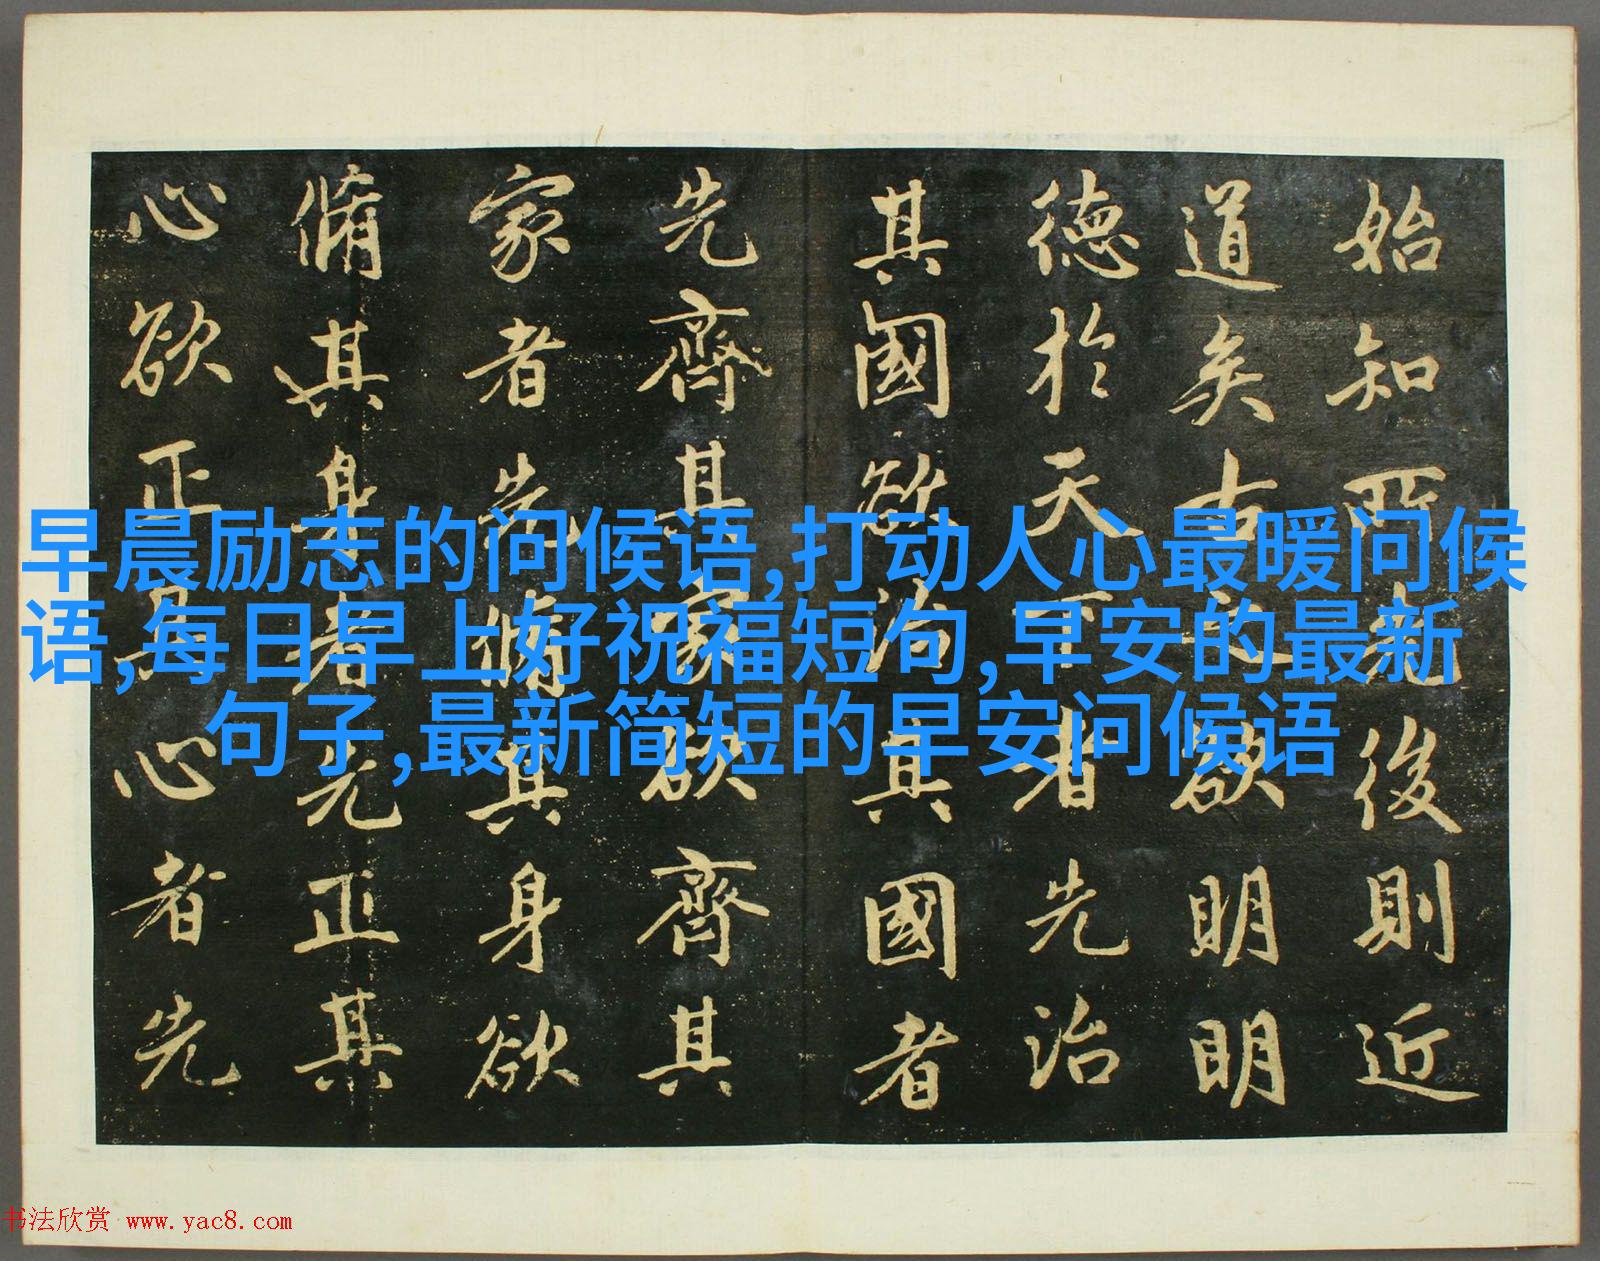 始知所先後則近
道矣古之欲明明
德於天下者先治
其國欲治其國者
先齊其家欲齊其
家者先脩其身欲
脩其身者先正其
心欲正其心者先
早晨励志的问候语,打动人心最暖问候
语,每日早上好祝福短句,早安的最新
句子,最新简短的早安问候语
书法欣赏 www.yac8.com